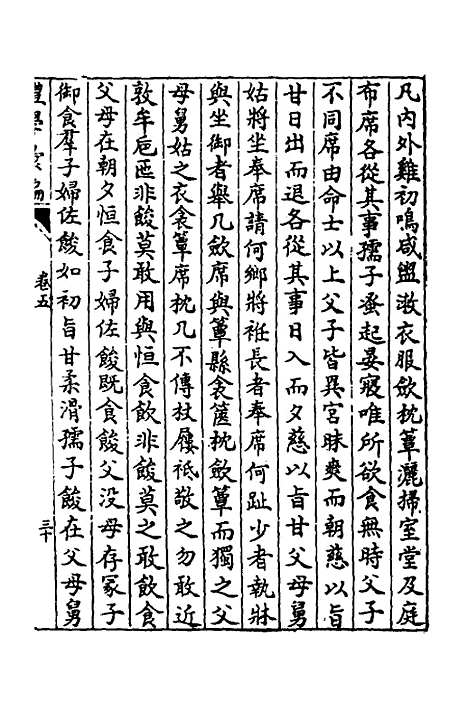 凡內外雞初鳴咸盥漱衣服歛枕簟灑掃室堂及庭
布席各從其事孺子蚤起晏寢唯所欲食無時父子
不同席由命士以上父子皆異宮昧爽而朝慈以旨
甘日出而退各從其事日入而夕慈以旨甘父母舅
姑將坐奉席請何鄉將衽長者奉席何趾少者執牀
與坐御者舉几歛席與簟縣衾篋枕歛簟而獨之父
母舅姑之衣衾簟席枕几不傳杖屨祗敬之勿敢近
敦牟巵匜非餕莫敢用與恒食飲非餕莫之敢飲食
父母在朝夕恒食子婦佐餕既食餕父没母存冢子
御食羣子婦佐餕如初旨甘柔滑孺子餕在父母舅
卷五
三十